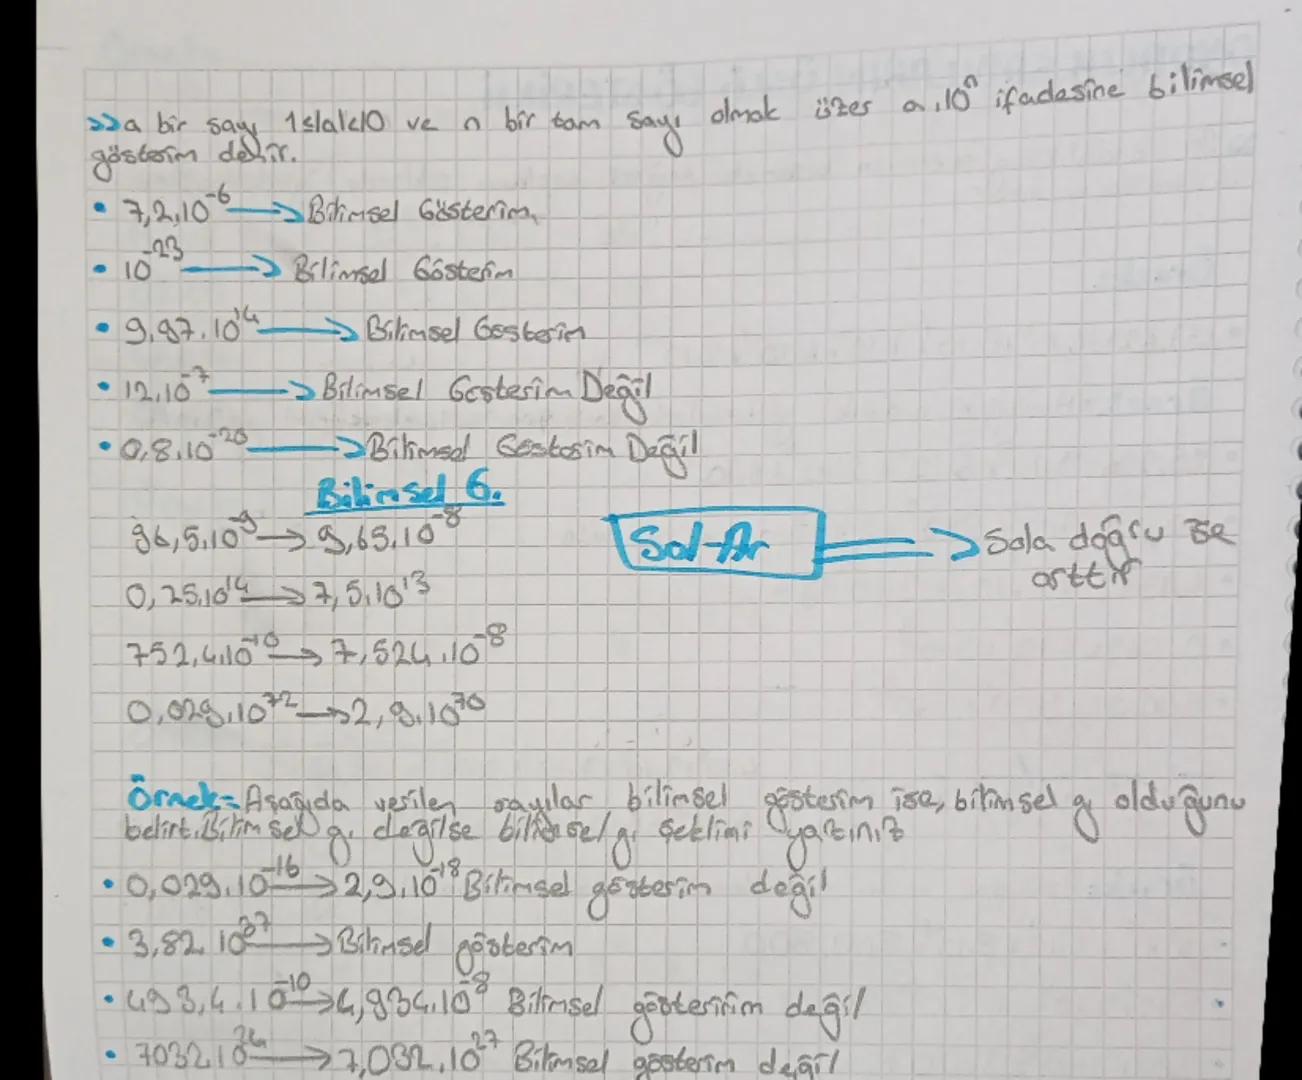 >> a bir sayı 1≤|a|<10 ve n bir tam sayı olmak üzer a.10ⁿ ifadesine bilimsel
gösterim denir.
• 7,2.10⁻⁶ → Bilimsel Gösterim
• 10⁻²³ → Bilimsel Gösterim
• 9,97.10¹⁴ → Bilimsel Gösterim
• 12.10⁻⁷ → Bilimsel Gösterim Değil
• 0,8.10⁻²⁰ → Bilimsel Gösterim Değil
Bilimsel G.
96,5.10⁻⁹ → 9,65.10⁻⁸
0,75.10¹⁴ → 7,5.10¹³
752,4.10⁻¹⁰ → 7,524.10⁻⁸
0,029.10⁷² → 2,9.10⁷⁰
Sol-Ar ⇒ Sola doğru ise
arttır
Örnek= Aşağıda verilen sayılar bilimsel gösterim ise, bilimsel g. olduğunu
belirt. Bilimsel g. değilse bilimsel g. şeklini yazınız
• 0,029.10⁻¹⁶ → 2,9.10⁻¹⁸ Bilimsel gösterim değil
• 3,82.10³⁷ → Bilimsel gösterim
• 493,4.10⁻¹⁰ → 4,934.10⁻⁸ Bilimsel gösteririm değil
• 7032.10²⁴ → 7,032.10²⁷ Bilimsel gösterim değil